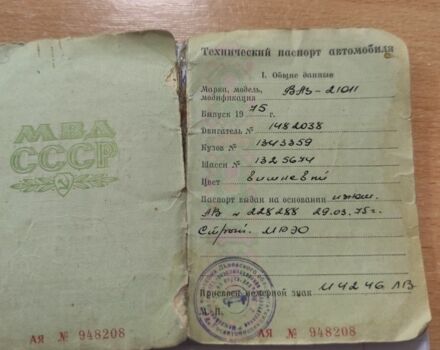 МВД
СССР
АЯ № 948208
Технический паспорт автомобиля
I. Общие данные
Марка, модель, ВАЗ-21011
модификация
Выпуск 1975 г.
Двигатель № 1482038
Кузов № 1343359
Шасси № 1325674
Цвет вишневый
Паспорт выдан на основании
ЛВ № 228288 29.03.75г.
Стрый. МРЭО
Присвоен номерной знак И4246 ЛВ
М.П.
АЯ № 948208